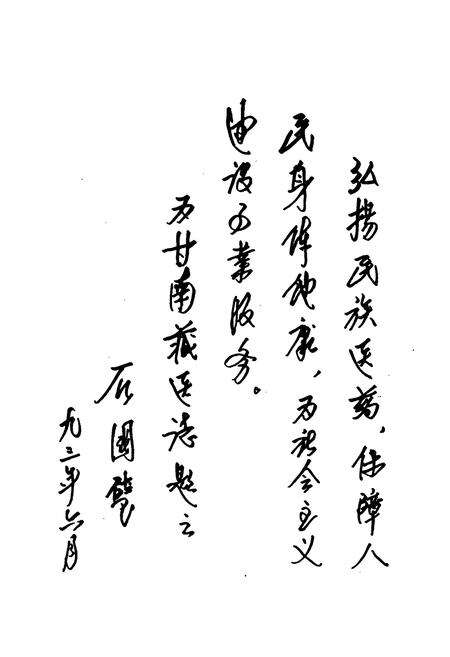 弘揚民族医药，保障人
民身体健康，为社会主义
建设事业服务。
为甘南藏医志题
石國
九三年六月